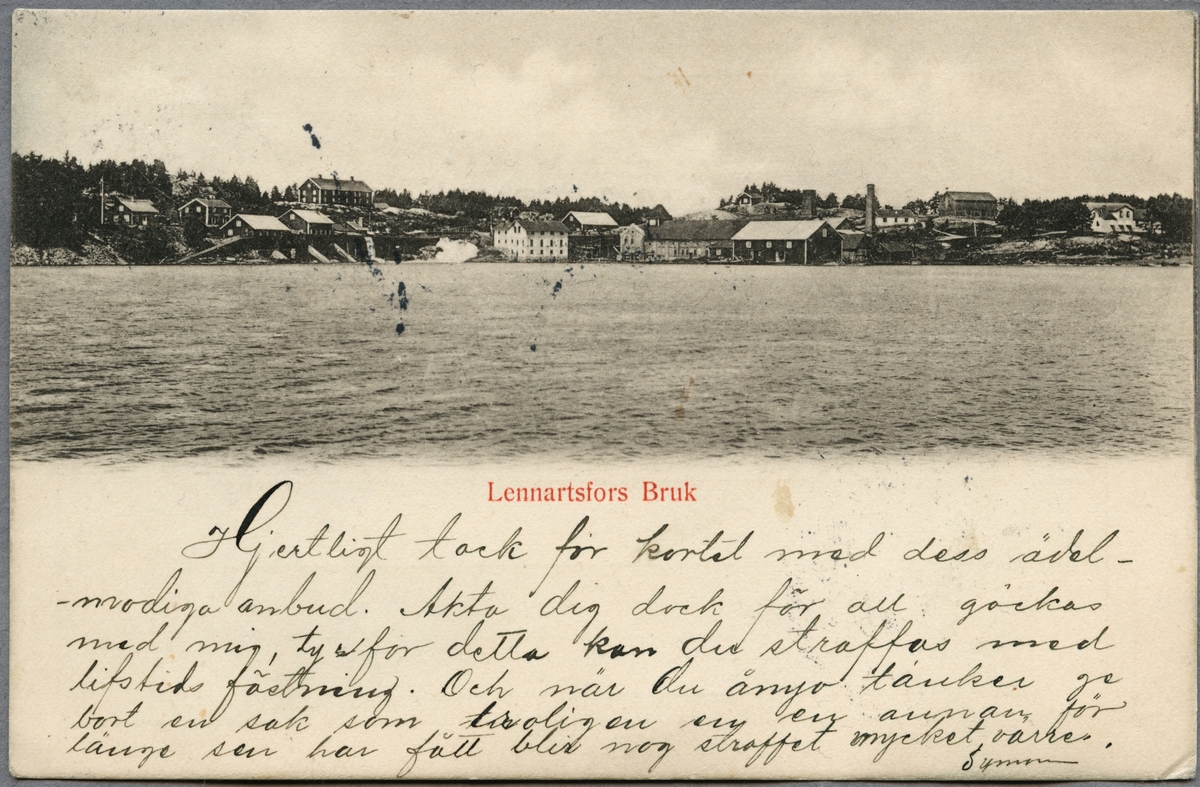 Lennartsfors Bruk
Hjertligt tack för kortet med dess ädel-
-modiga anbud. Akta dig dock för att gäckas
med mig, ty för detta kan du straffas med
lifstids fästning. Och när Du ånyo tänker ge
bort en sak som troligen en annan för
länge sen har fått blir nog straffet mycket värre.